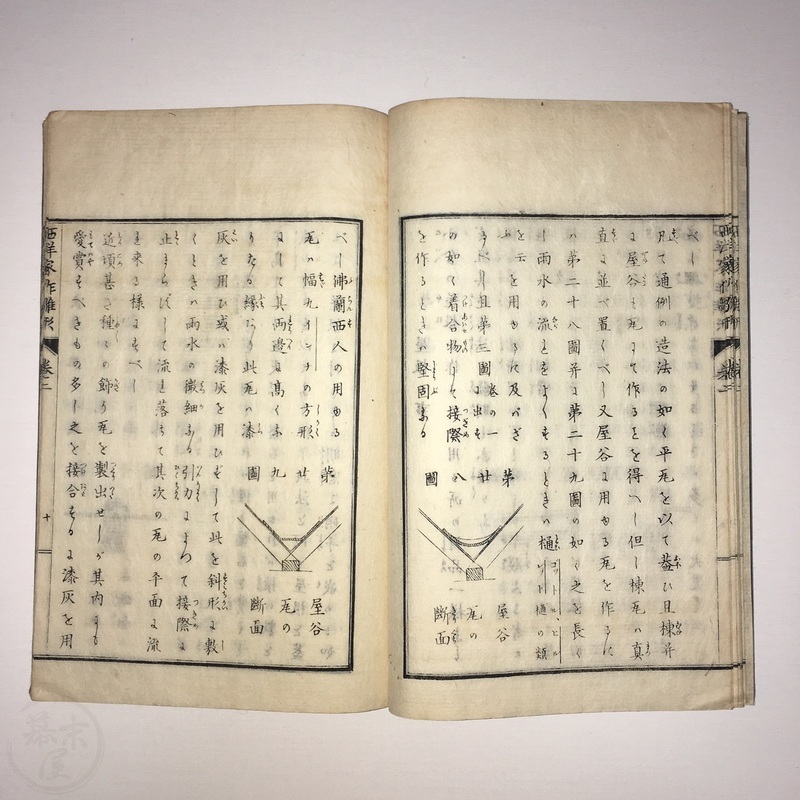 凡て通例の造法の如く平瓦を以て葢ひ且棟并
に屋谷も瓦にて作るを得べし但し棟瓦ハ真
直に並べ置くべし又屋谷に用ゆる瓦を作るに
ハ第二十八圖并に第二十九圖の如く之を長く
し雨水の流れをよくするときハ樋
を云
ふを用ゆるに及バざ
るべし且第三圖卷の一に出す
の如く着合物にて接際
を作るときハ堅固なる
第廿八圖
屋谷瓦の断面
べし沸蘭西人の用ゆる
瓦ハ幅九インチの方形
にして其両邊に高くふ
りたる縁あり此瓦ハ漆
灰を用ひ或ハ漆灰を用ひずして此を斜形に敷
くときハ雨水の微細なる引力によつて接際に
止まらずして流れ落ちて其次の瓦の平面に流
れ来る様にすべし
近頃甚き種々の飾り瓦を製出せしが其内にも
愛賞すべきもの多し之を接合するに漆灰を用
第廿九圖
屋谷瓦の断面
西洋家作雛形 卷二
十
幕末屋